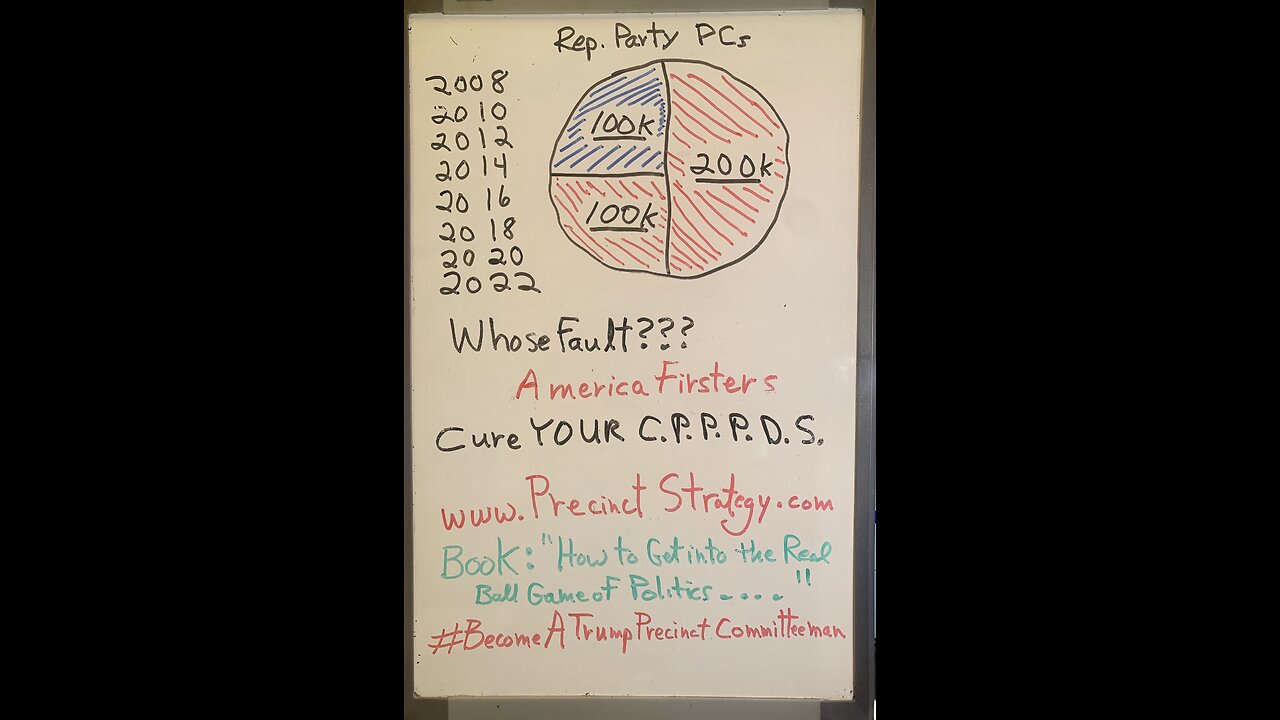 Rep. Party PCs
2008
2010
2012
2014
2016
2018
2020
2022
100k
200k
100k
Whose Fault???
America Firsters
Cure YOUR C.P.P.P.D.S.
www.PrecinctStrategy.com
Book: "How to Get into the Real
Ball Game of Politics...."
#BecomeATrumpPrecinctCommitteeman